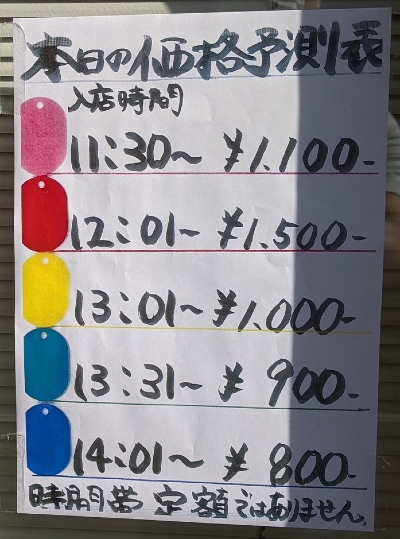 本日の価格予測表
入店時間
11:30~ ¥1.100-
12:01~ ¥1.500-
13:01~ ¥1.000-
13:31~ ¥ 900-
14:01~ ¥ 800-
時間帯 定額ではありません。